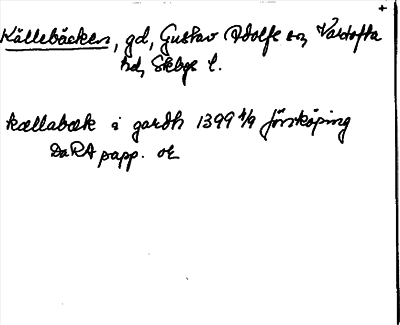 +
Källebäcken, gd, Gustav Adolfs sn, Vartofta
hd, Skbgs l.
kællabæk i gardh 1399 4/9 Jönköping
DaRA papp. or